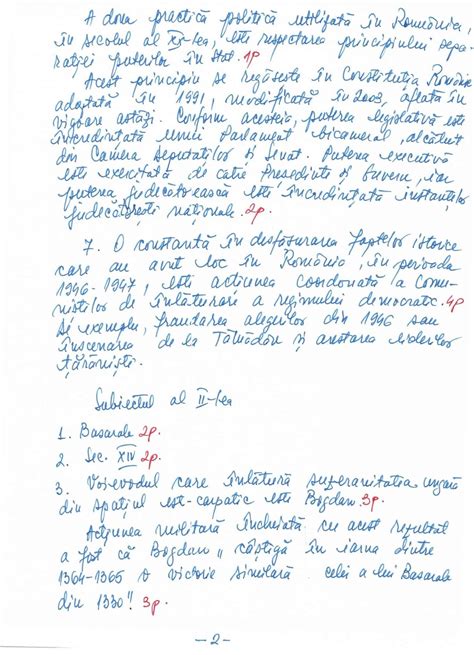 A doua practică politică utilizată în România,
în secolul al XX-lea, este respectarea principiului sepa-
rației puterilor în stat. 1p
Acest principiu se regăsește în Constituția României
adoptată în 1991, modificată în 2003, aflată în
vigoare astăzi. Conform acesteia, puterea legislativă este
încredințată unui Parlament bicameral, alcătuit
din Camera Deputaților și Senat. Puterea executivă
este exercitată de către Președinte și Guvern, iar
puterea judecătorească este încredințată instanțelor
judecătorești naționale. 2p.
7. O constantă în desfășurarea faptelor istorice
care au avut loc în România, în perioada
1946-1947, este acțiunea coordonată a Comu-
niștilor de înlăturare a regimului democratic. 4p
De exemplu, fraudarea alegerilor din 1946 sau
înscenarea de la Tămădău și arestarea liderilor
țărăniști.
Subiectul al II-lea
1. Basarab 2p.
2. Sec. XIV 2p.
3. Voievodul care înlătură suzeranitatea ungară
din spațiul est-carpatic este Bogdan. 3p.
Acțiunea militară încheiată cu acest rezultat
a fost că Bogdan „câștigă în iarna dintre
1364-1365 o victorie similară celei a lui Basarab
din 1330”! 3p.
-2-